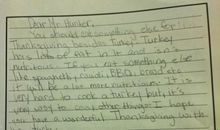 Dear Mr. Hunter,
You should eat something else for
Thanksgiving besides Turkey. Turkey
has lots of fat in it and isn't
nutritious. If you eat something else
like spaghetti, BBQ, bread etc
it will be a lot more nutritious. It is
very hard to cook a turkey but, it's
very easy to cook other things. I hope
you have a wonderful Thanksgiving